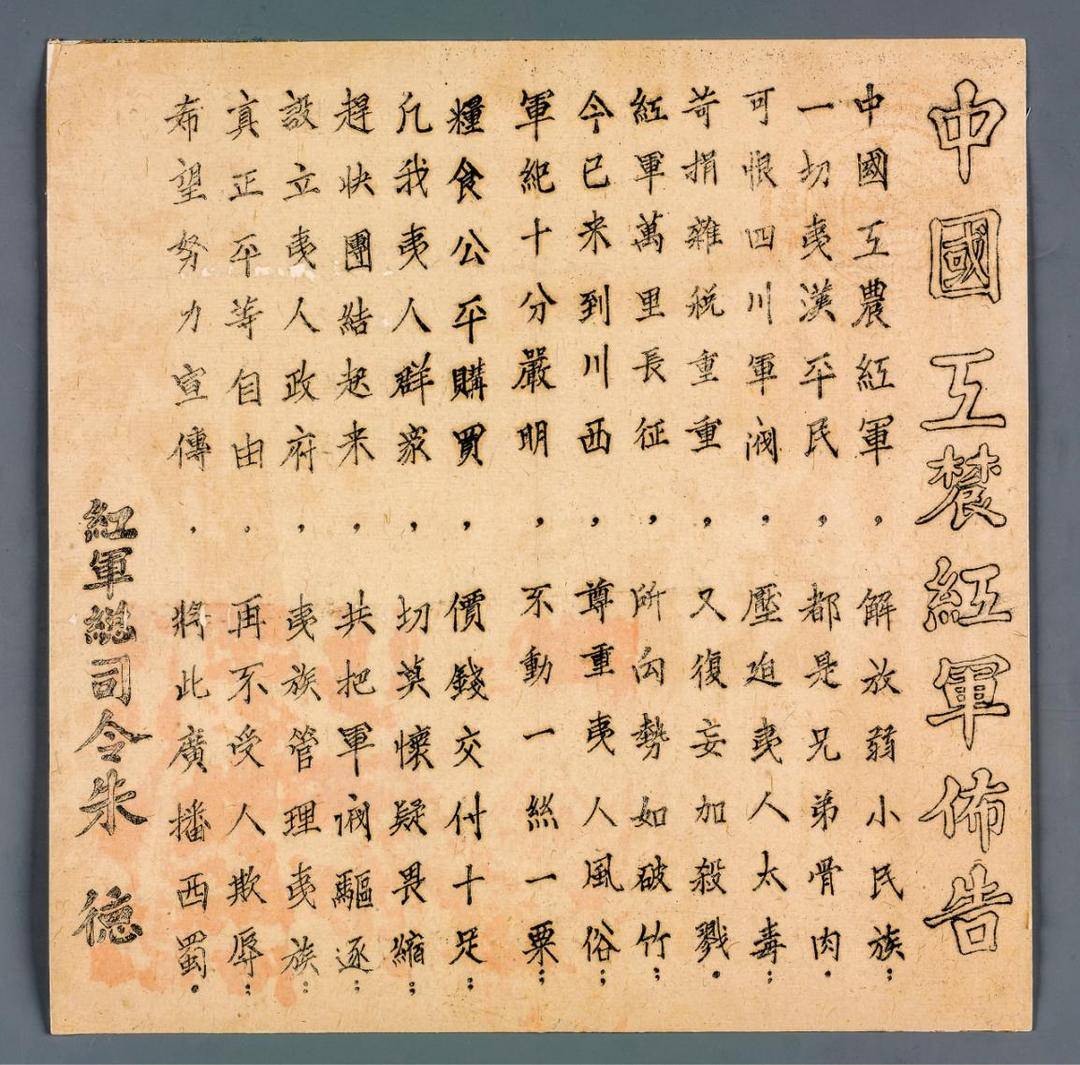 中國工農紅軍佈告
中國工農紅軍，解放弱小民族；
一切夷漢平民，都是兄弟骨肉.
可恨四川軍閥，壓迫夷人太毒；
苛捐雜税重重，又復妄加殺戮.
紅軍萬里長征，所向勢如破竹；
今已来到川西，尊重夷人風俗；
軍紀十分嚴明，不動一絲一粟；
糧食公平購買，價錢交付十足；
凡我夷人群衆，切莫懷疑畏縮；
趕快團結起来，共把軍阀驅逐；
設立夷人政府，夷族管理夷族；
真正平等自由，再不受人欺辱；
希望努力宣傳，將此廣播西蜀.
紅軍總司令朱德